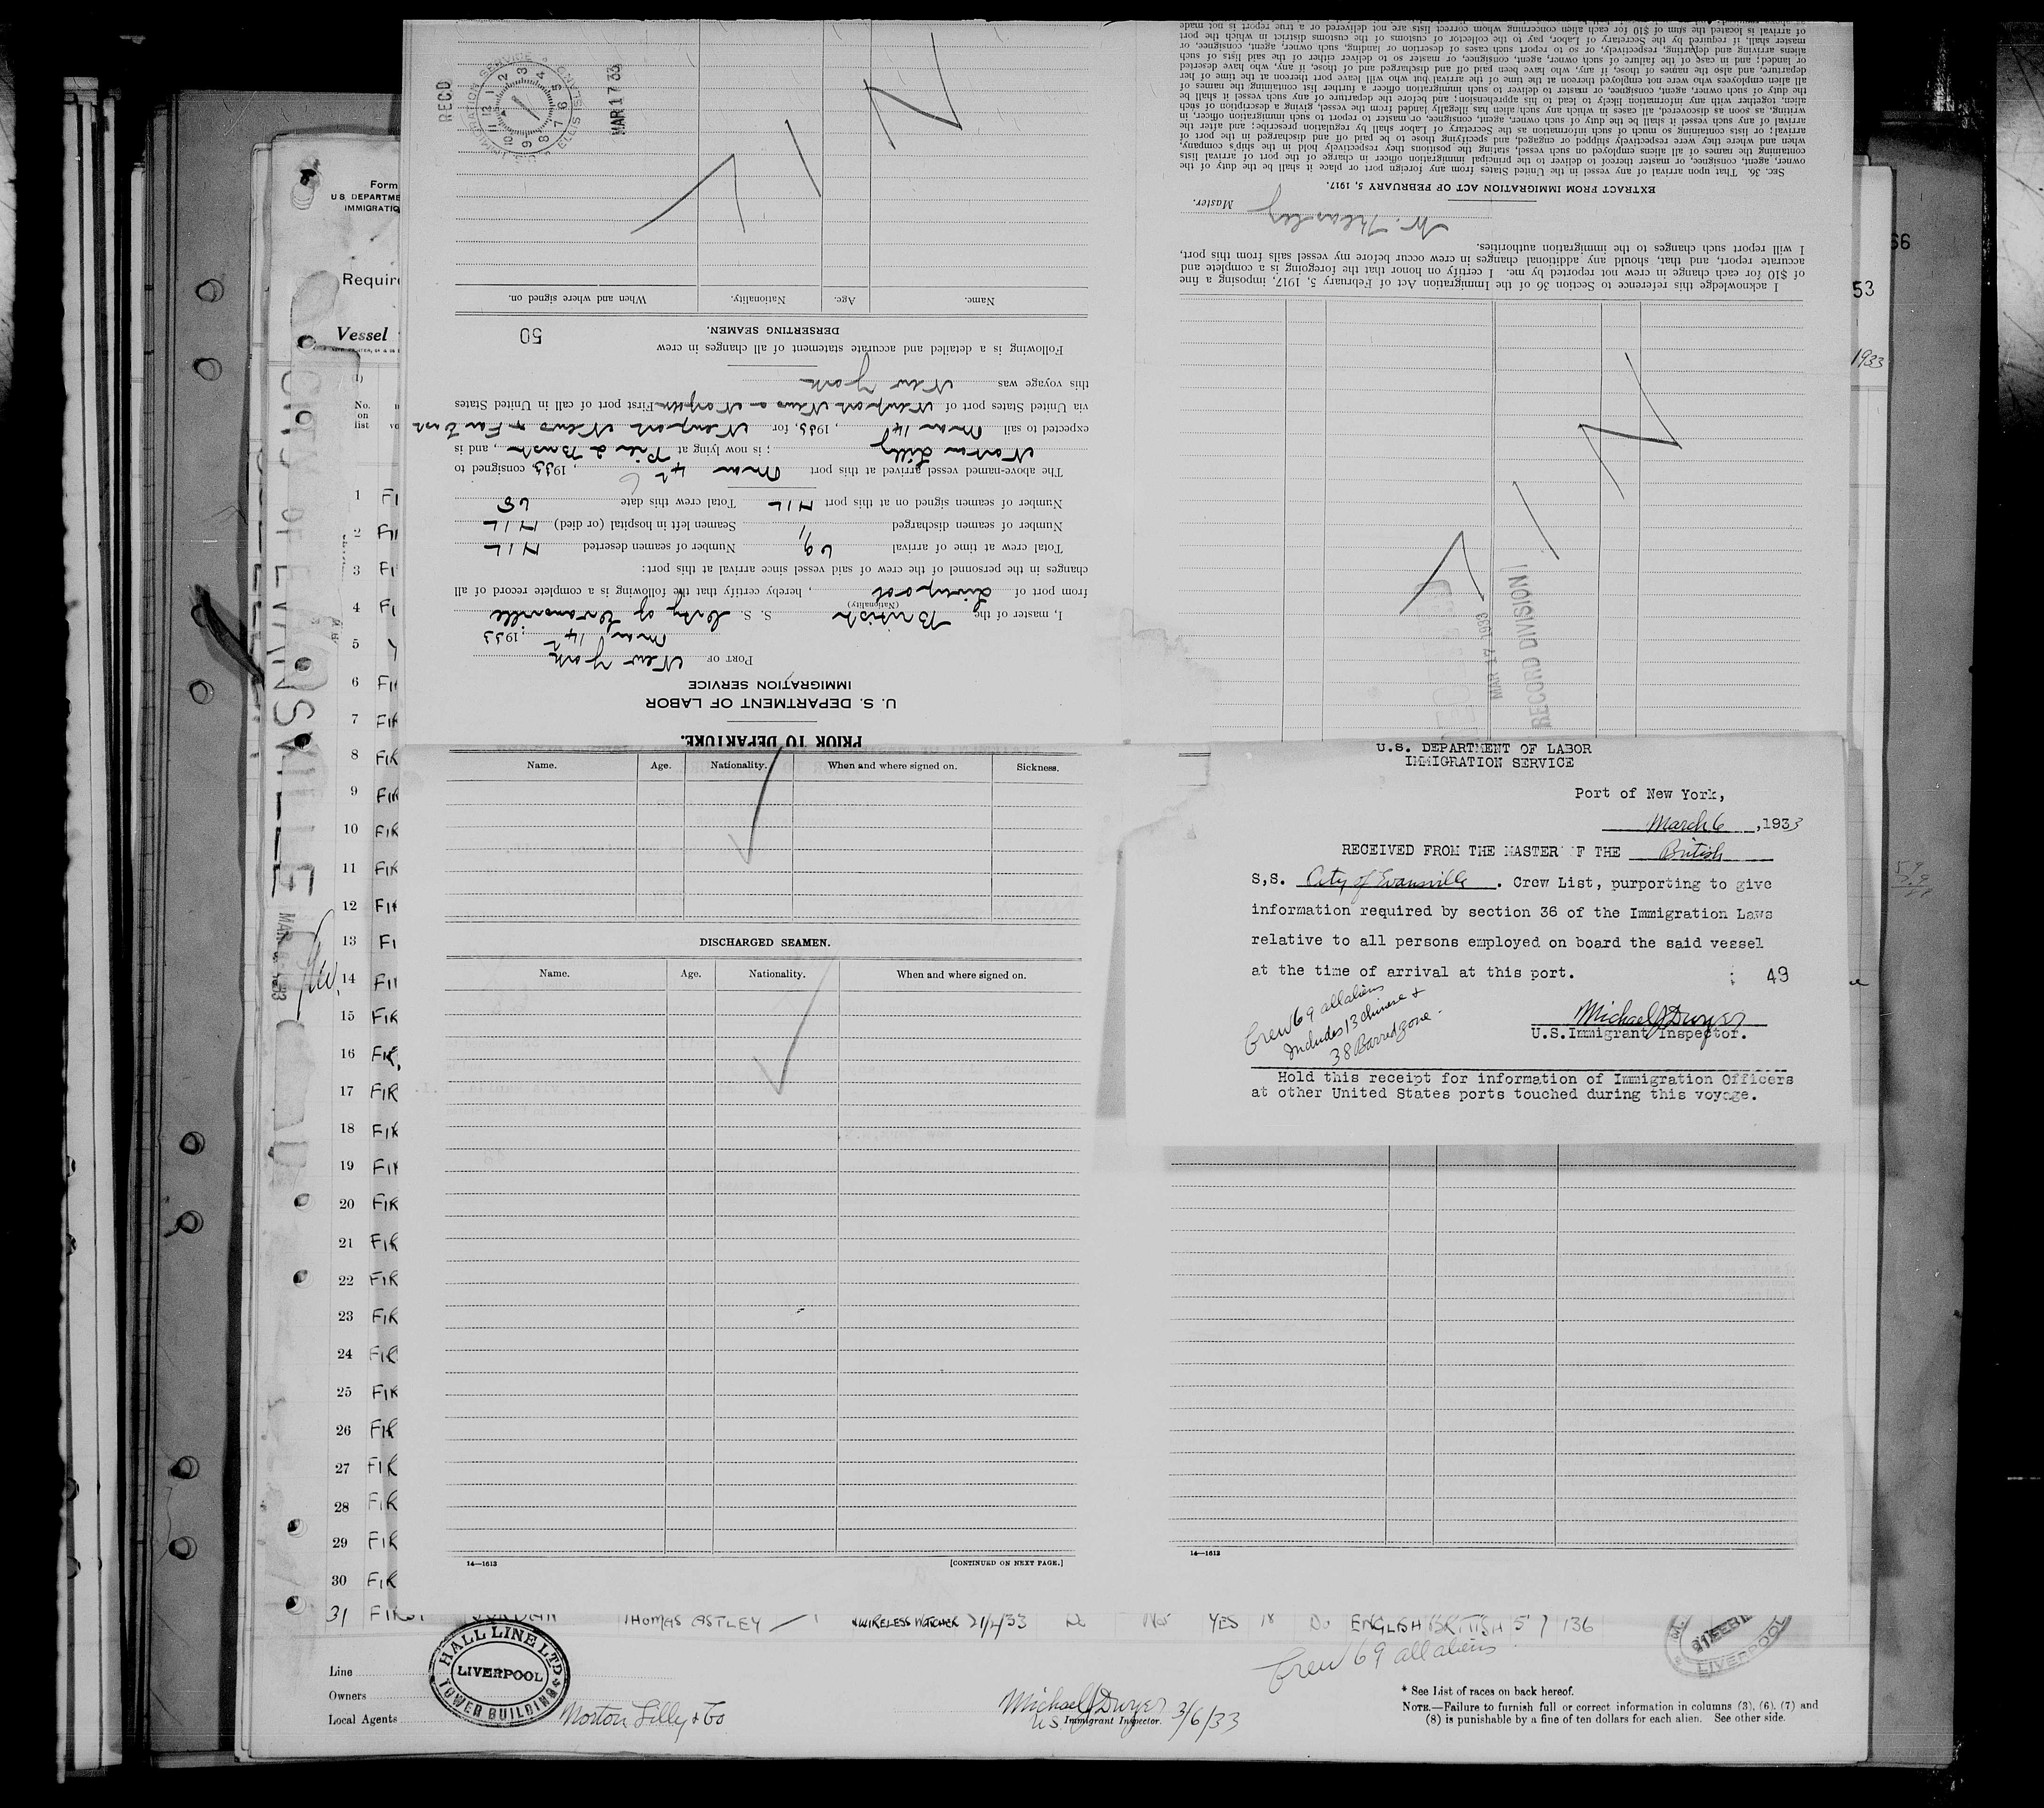 Form
U.S. DEPARTME
IMMIGRATIO
Require
Vessel
(1)
No.
on
list
CITY OF EVANSVILLE
1 FI
2 FI
3 FI
4 FI
5
6 FI
7 FIR
8 FIR
9 FIR
10 FIR
11 FIR
12 FIR
13 FI
14 FI
15 FIR
16 FIR
17 FIR
18 FIR
19 FIR
20 FIR
21 FIR
22 FIR
23 FIR
24 FIR
25 FIR
26 FIR
27 FIR
28 FIR
29 FIR
30 FIR
31 FIRST JORDAN THOMAS ASTLEY WIRELESS WATCHER 21/2/33 Do YES 18 Do ENGLISH BRITISH 5 7 136
Crew 69 all aliens
HALL LINE LTD
LIVERPOOL
TOWER BUILDING
LIVERPOOL
Line
Owners
Local Agents Morton Lilly & Co
Michael J Dwyer
U S Immigrant Inspector. 3/6/33
* See List of races on back hereof.
NOTE.—Failure to furnish full or correct information in columns (3), (6), (7) and
(8) is punishable by a fine of ten dollars for each alien. See other side.
66
53
1933
PRIOR TO DEPARTURE.
U. S. DEPARTMENT OF LABOR
IMMIGRATION SERVICE
PORT OF New York
Mar 14th, 1933
I, master of the British S. S. City of Evansville
(Nationality)
from port of Liverpool, hereby certify that the following is a complete record of all
changes in the personnel of the crew of said vessel since arrival at this port:
Total crew at time of arrival 69 Number of seamen deserted NIL
Number of seamen discharged 1 Seamen left in hospital (or died) NIL
Number of seamen signed on at this port NIL Total crew this date 68
The above-named vessel arrived at this port Mar 6th, 1933, consigned to
Norton Lilly; is now lying at Pier 2 Bush, and is
expected to sail Mar 14th, 1933, for Newport News & Far East
via United States port of Newport News a Norfolk First port of call in United States
this voyage was New York
Following is a detailed and accurate statement of all changes in crew
DERSERTING SEAMEN. 50
Name. Age. Nationality. When and where signed on.
N I L
MAR 17 33
RECD
IMMIGRATION SERVICE
ELLIS ISLAND
1 2 3 4 5 6 7 8 9 10 11 12
RECORD DIVISION
MAR 17 1933
N I L
I acknowledge this reference to Section 36 of the Immigration Act of February 5, 1917, imposing a fine
of $10 for each change in crew not reported by me. I certify on honor that the foregoing is a complete and
accurate report, and that, should any additional changes in crew occur before my vessel sails from this port,
I will report such changes to the immigration authorities.
Master.
EXTRACT FROM IMMIGRATION ACT OF FEBRUARY 5, 1917.
SEC. 36. That upon arrival of any vessel in the United States from any foreign port or place it shall be the duty of the
owner, agent, consignee, or master thereof to deliver to the principal immigration officer in charge of the port of arrival lists
containing the names of all aliens employed on such vessel, stating the positions they respectively hold in the ship's company,
when and where they were respectively shipped or engaged, and specifying those to be paid off and discharged in the port of
arrival; or lists containing so much of such information as the Secretary of Labor shall by regulation prescribe; and after the
arrival of any such vessel it shall be the duty of such owner, agent, consignee, or master to report to such immigration officer, in
writing, as soon as discovered, all cases in which any such alien has illegally landed from the vessel, giving a description of such
alien, together with any information likely to lead to his apprehension; and before the departure of any such vessel it shall be
the duty of such owner, agent, consignee, or master to deliver to such immigration officer a further list containing the names of
all alien employees who were not employed thereon at the time of the arrival but who will leave port thereon at the time of her
departure, and also the names of those, if any, who have been paid off and discharged and of those, if any, who have deserted
or landed; and in case of the failure of such owner, agent, consignee, or master so to deliver either of the said lists of such
aliens arriving and departing, respectively, or so to report such cases of desertion or landing, such owner, agent, consignee, or
master shall, if required by the Secretary of Labor, pay to the collector of customs of the customs district in which the port
of arrival is located the sum of $10 for each alien concerning whom correct lists are not delivered or a true report is not made
Name. Age. Nationality. When and where signed on. Sickness.
DISCHARGED SEAMEN.
Name. Age. Nationality. When and where signed on.
14—1613 [CONTINUED ON NEXT PAGE.]
14—1613
U.S. DEPARTMENT OF LABOR
IMMIGRATION SERVICE
Port of New York,
March 6, 1933
RECEIVED FROM THE MASTER OF THE British
S,S. City of Evansville. Crew List, purporting to give
information required by section 36 of the Immigration Laws
relative to all persons employed on board the said vessel
at the time of arrival at this port. : 49
Crew 69 all aliens
Includes 13 Chinese &
38 Barred zone.
Michael J Dwyer
U.S.Immigrant Inspector.
Hold this receipt for information of Immigration Officers
at other United States ports touched during this voyage.